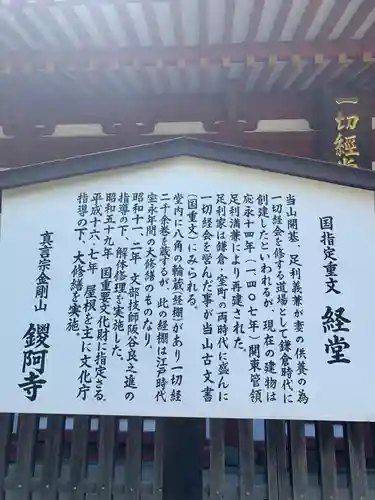 一切經堂
国指定重文 経堂
当山開基、足利義兼が妻の供養の為
一切経会を修する道場として鎌倉時代に
創建したといわれるが、現在の建物は
応永十四年(一四〇七年)関東管領
足利満兼により再建された。
足利家は鎌倉・室町の両時代に盛んに
一切経会を営んだ事が当山古文書
(国重文)にみられる。
堂内に八角の輪蔵(経棚)があり一切経
二千余巻を蔵するが、此の経棚は江戸時代
宝永年間の大修繕のものなり。
昭和十一、二年 文部技師阪谷良之進の
指導の下、解体修理を実施した。
昭和五十九年 国重要文化財に指定さる。
平成十六・七年 屋根を主に文化庁
指導の下、大修繕を実施。
真言宗金剛山 鑁阿寺